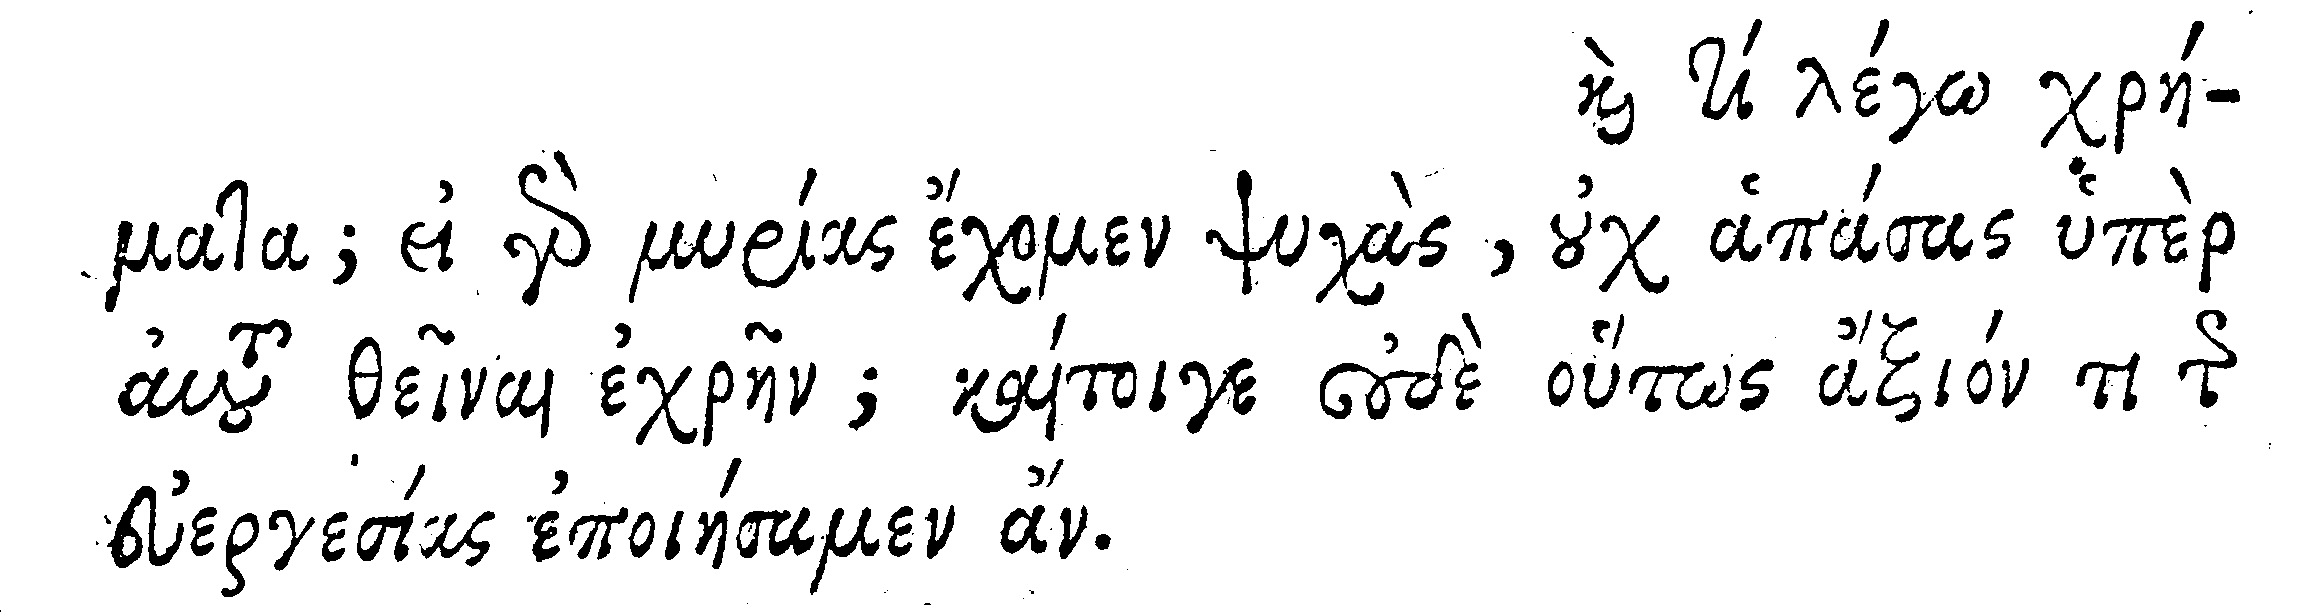 καὶ τί λέγω χρή-
ματα; εἰ γὰρ μυρίας ἔχομεν ψυχὰς, οὐχ ἁπάσας ὑπὲρ
αὐτοῦ θεῖναι ἐχρῆν; καίτοιγε οὐδὲ οὕτως ἄξιόν τι τῆς
εὐεργεσίας ἐποιήσαμεν ἄν.